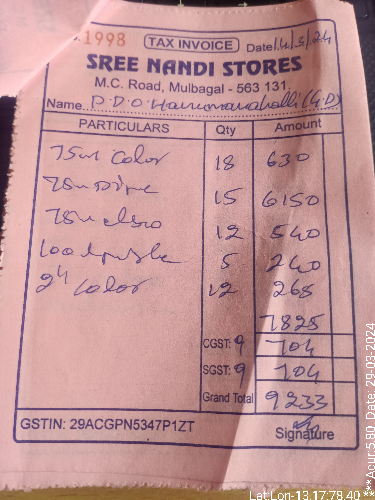 1998 TAX INVOICE Date 14/3/24
SREE NANDI STORES
M.C. Road, Mulbagal - 563 131.
Name P.D.O Hanumanahalli (G.D)
PARTICULARS Qty Amount
75m Color 18 630
15 6150
12 540
100 5 240
2" Color 12 265
7825
CGST: 9 704
SGST: 9 704
Grand Total 9233
GSTIN: 29ACGPN5347P1ZT Signature
Lat:Lon-13.17:78.40
***Acur:5.80 Date: 29-03-2024